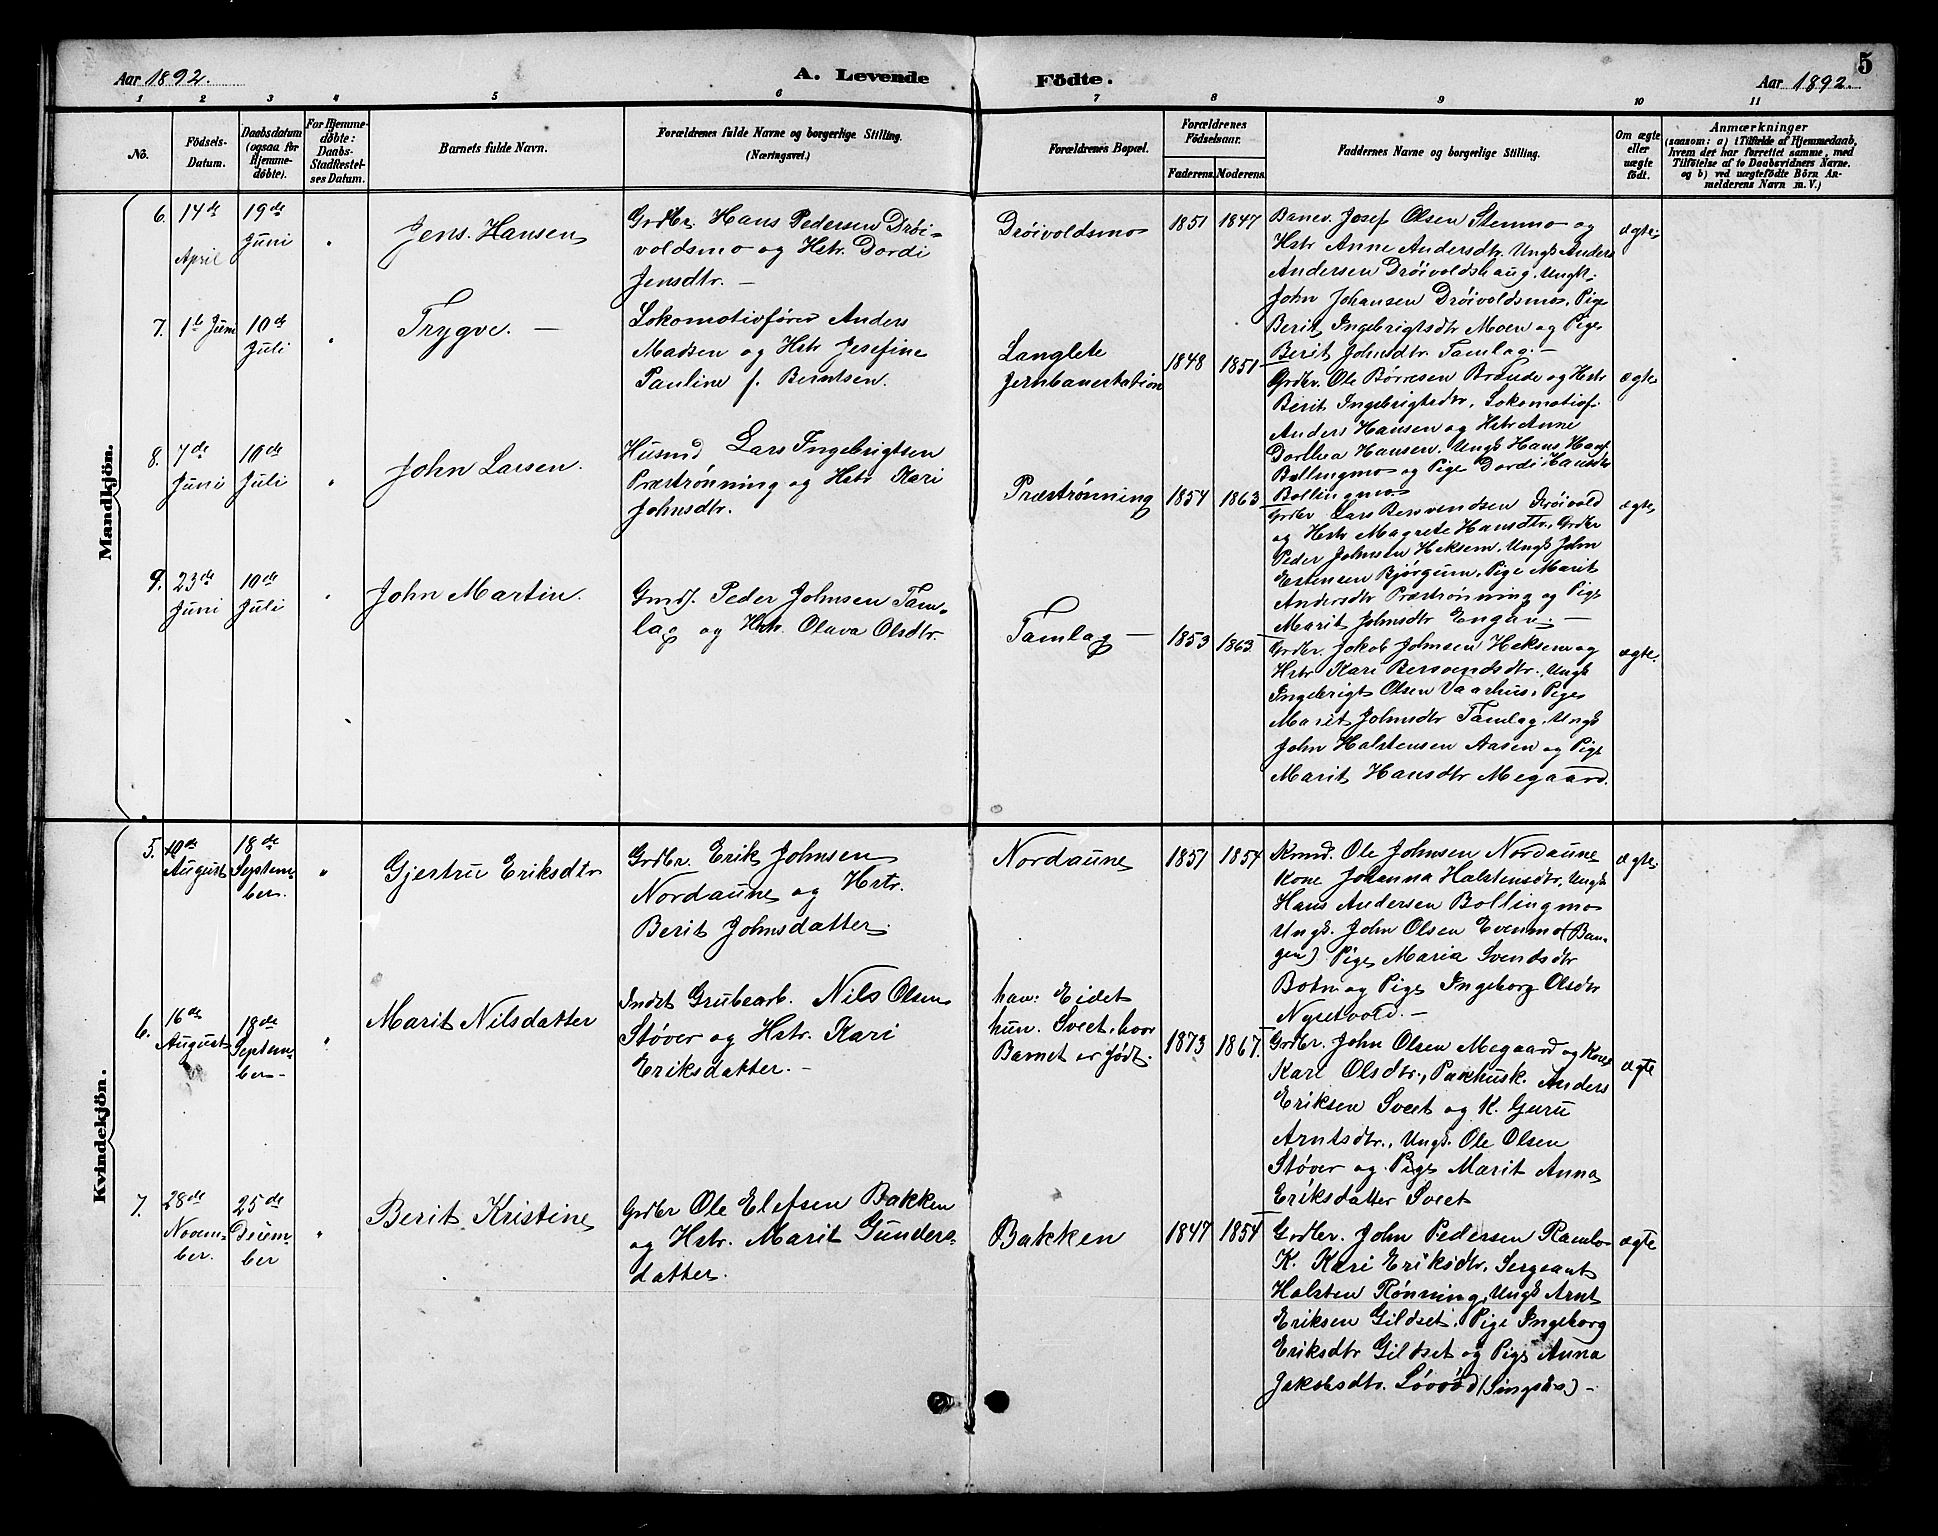 Aar 1892.
A. Levende Födte.
Aar 1892.
5
1 2 3 4 5 6 7 8 9 10 11
No.
Födsels-
Datum.
Daabsdatum
(ogsaa for
Hjemme-
döbte).
For Hjemme-
döbte:
Daabs-
Stadfæstel-
ses Datum.
Barnets fulde Navn.
Forældrenes fulde Navne og borgerlige Stilling.
(Næringsvei.)
Forældrenes Bopæl.
Forældrenes
Födselsaar.
Faderens.
Moderens.
Faddernes Navne og borgerlige Stilling.
Om ægte
eller
uægte
födt.
Anmærkninger
(saasom: a) i Tilfælde af Hjemmedaab,
hvem det har forrettet samme, med
Tilföielse af to Daabsvidners Navne.
og b) ved uægtefödte Börn An-
melderens Navn m. V.)
Mandkjön.
6.
14de
April
19de
Juni
"
Jens Hansen
Grdbr. Hans Pedersen Drøi-
voldsmo og Hstr. Dordi
Jensdtr. —
Drøivoldsmo
1851
1847
Banev. Josef Olsen Stenmo og
Hstr Anne Andersdtr. Ungk Anders
Andersen Drøivoldshaug, Ungk.
John Johansen Drøivoldsmo, Pige
Berit Ingebrigtsdtr Moen og Pige
Berit Johnsdtr. Tamlag. —
ægte
7.
1ste Juni
10de
Juli
"
Trygve. —
Lokomotivfører Anders
Madsen og Hstr Josefine
Pauline f. Berntsen.
Langlete
Jernbanestation
1848
1851
Grdbr. Ole Børresen Brænde og Hstr
Berit Ingebrigtsdtr, Lokomotivf.
Anders Hansen og Hstr Anne
Dorthea Hansen. Ungk Hans Hans.
Bollingmo og Pige Dordi Hansdtr
Bollingmo
ægte
8.
7de
Juni
10de
Juli
"
John Larsen.
Husmd Lars Ingebrigtsen
Præstrønning og Hstr Kari
Johnsdtr.
Præstrønning
1854
1863
Grdbr Lars Bersvendsen Drøivold
og Hstr Magrete Hansdtr, Grdbr
Peder Johnsen Heksem, Ungk John
Estensen Bjørgum, Pige Marit
Andersdtr Præstrønning og Pige
Marit Johnsdtr Engan. —
ægte
9.
23de
Juni
10de
Juli
"
John Martin.
Gmdf. Peder Johnsen Tam-
lag og Hstr. Olava Olsdtr.
Tamlag —
1853
1863
Grdbr. Jakob Johnsen Heksem og
Hstr Kari Bersvendsdtr., Ungk
Ingebrigt Olsen Vaarhus, Pige
Marit Johnsdtr Tamlag, Ungk
John Halstensen Aasen og Pige
Marit Hansdtr Megaard.
ægte.
Kvindekjön.
5.
10de
August
18de
Septem-
ber.
"
Gjertru Eriksdtr
Grdbr. Erik Johnsen
Nordaune og Hstr.
Berit Johnsdatter.
Nordaune
1851
1854
Kmd. Ole Johnsen Nordaune
Kone Johanna Halstensdtr, Ungk
Hans Andersen Bollingmo
Ungk. John Olsen Evenmo (Ban-
gen) Pige Maria Svendsdtr
Botn og Pige Ingeborg Olsdtr
Nysetvold. —
ægte
6.
16de
August
18de
Septem-
ber —
"
Marit Nilsdatter
Indst Grubearb. Nils Olsen
Støver og Hstr. Kari
Eriksdatter. —
han: Eidet
hun. Sveet, hvor
Barnet er født.
1873
1867.
Grdbr. John Olsen Megaard og Kone
Kari Olsdtr., Pakhusk. Anders
Eriksen Sveet og K. Guru
Arntsdtr., Ungk. Ole Olsen
Støver og Pige Marit Anna
Eriksdatter Sveet
ægte
7.
28de
Novem-
ber.
25de
Decem-
ber
"
Berit Kristine
Grdbr Ole Elefsen Bakken
og Hstr. Marit Gunders-
datter.
Bakken
1847
1854
Grdbr. John Pedersen Ramlo
K. Kari Eriksdtr, Sergeant
Halsten Rønning, Ungk Arnt
Eriksen Gildset, Pige Ingeborg
Eriksdtr Gildset og Pige Anna
Jakobsdtr. Løvrød (Singsaas) —
ægte